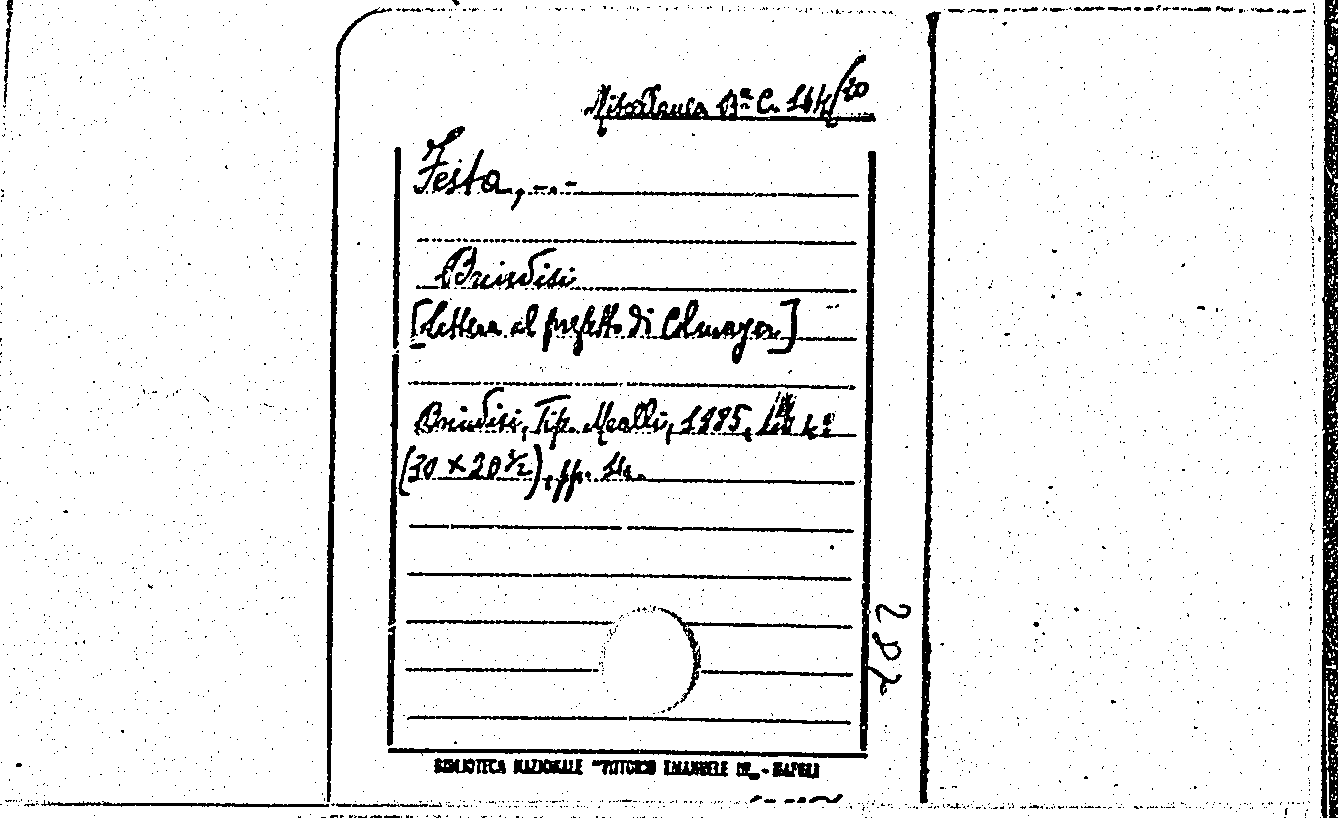 Miscellanea Bª C. 144/20
Festa, ---
Brindisi
[Lettera al prefetto di Colmayer]
Brindisi, Tip. Mealli, 1885, 4º
(30 x 20 ½), pp. 14.
287
BIBLIOTECA NAZIONALE "VITTORIO EMANUELE III" - NAPOLI